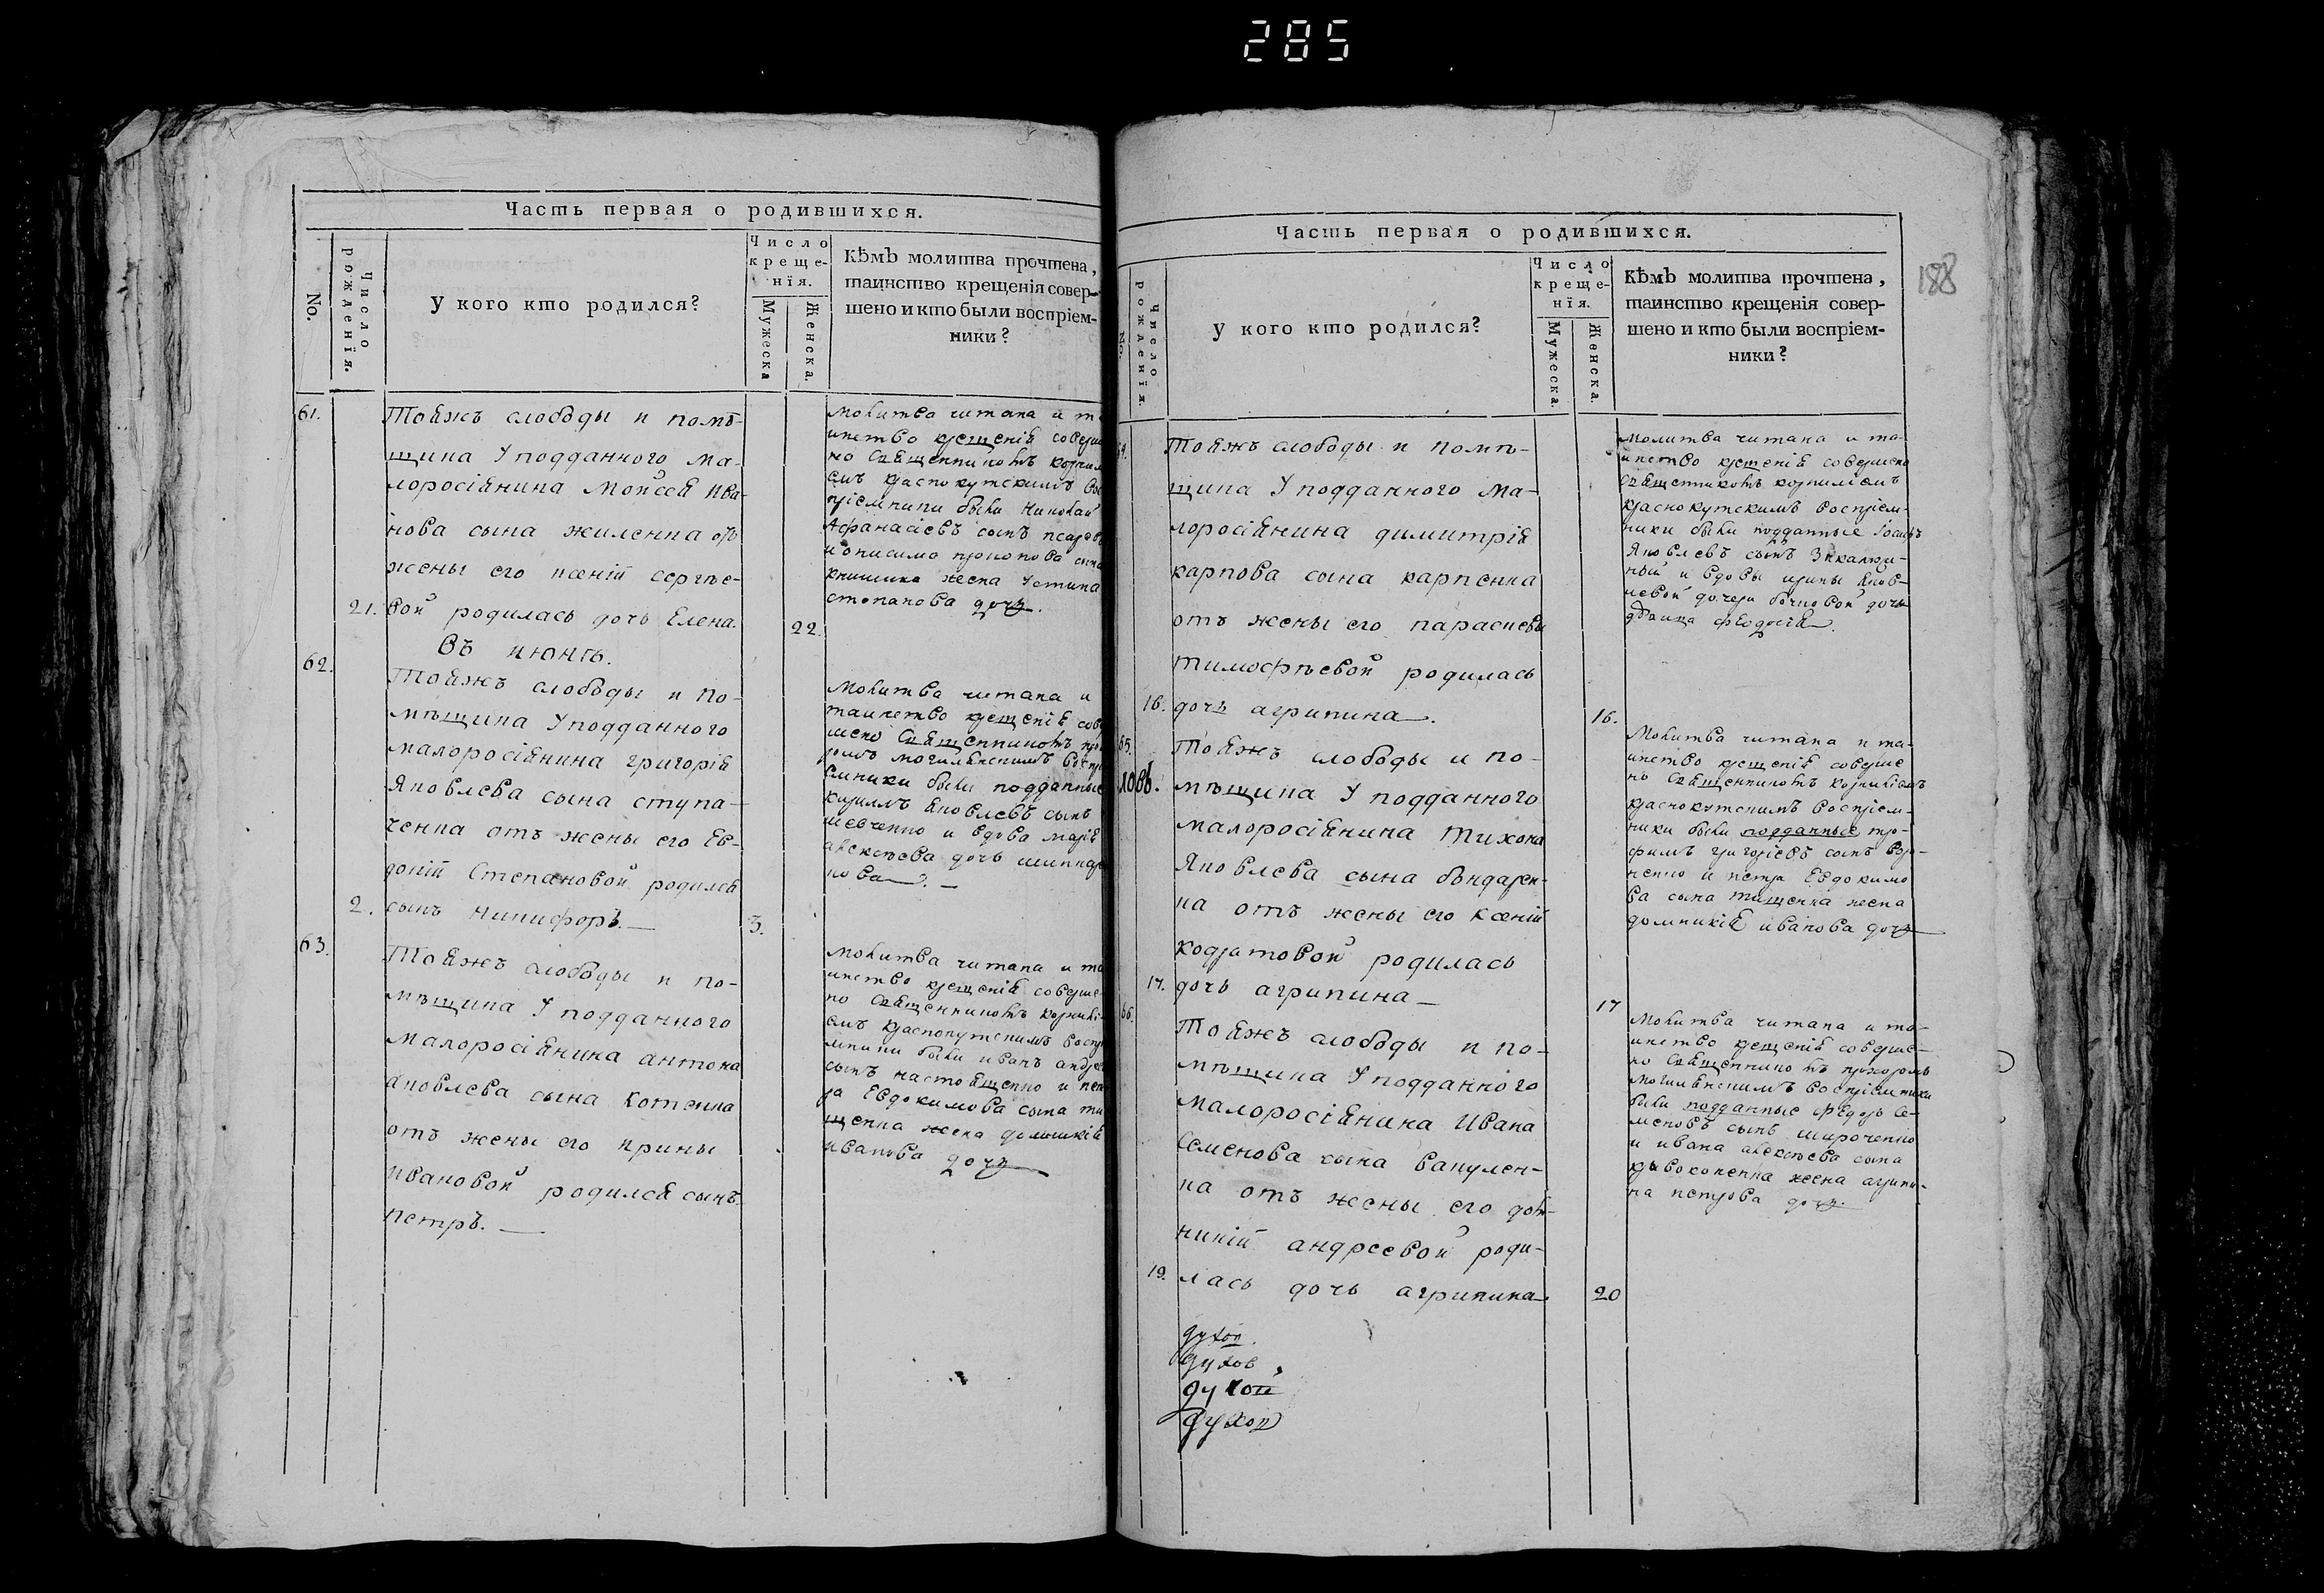 285
Часть первая о родившихся.
No.
Число рожденїя.
у кого кто родился?
Число
креще-
нїя.
Мужеска
Женска.
Кѣмъ молитва прочтена,
таинство крещенїя совер-
шено и кто были воспрїем-
ники?
61.
Тояжъ слободы и помѣ-
щика У подданного ма-
лоросіянина Моисея Ива-
нова сына жиленка отъ
жены его ксеніи сергѣе-
21. вой родилась дочь Елена.
22.
молитва читана и та
инство крещенія соверше
но Священникомъ корнил
емъ краснокутскимъ Вос
пріемники были Николай
Афанасіевъ сынъ
и онисима прокопова сына
книшика жена Устина
степанова дочь.
Въ июнѣ.
62.
Тояжъ слободы и по-
мѣщика У подданного
малоросіянина григорія
Яковлева сына ступа-
ченка отъ жены его Ев-
докіи Степановой родился
2. сынъ Никифоръ.
3.
Молитва читана и
таинство крещенія сове
шено Священникомъ про
ромъ могилянскимъ Воспр
емники были подданные
кирилъ Яковлевъ сынъ
шевченко и вдова марія
алексѣева дочь
63.
Тояжъ слободы и по-
мѣщика У подданного
малоросіянина антона
яковлева сына Котенка
отъ жены его ирины
ивановой родился сынъ
петръ.
молитва читана и та
инство крещенія соверше
но Священникомъ корнилі-
емъ краснокутскимъ Воспр
мники были иванъ андре
сынъ настоященко и пет
ра Евдокимова сына ти
щенка жена домникія
иванова дочь
Часть первая о родившихся.
188
No.
Число рожденїя.
у кого кто родился?
Число
креще-
нїя.
Мужеска.
Женска.
Кѣмъ молитва прочтена,
таинство крещенїя совер-
шено и кто были воспрїем-
ники?
64.
Тояжъ слободы и помѣ-
щика У подданного ма-
лоросіянина димитрія
карпова сына карпенка
отъ жены его параскевы
тимофѣевой родилась
16. дочь агрипина.
16.
молитва читана и та-
инство крещенія совершено
Священникомъ корниліемъ
краснокутскимъ воспріем-
ники были подданные Іосифъ
Яковлевъ сынъ
и вдовы ирины Яков-
левой дочери дочь
дѣвица феодосія.
65.
Тояжъ слободы и по-
ловъ. мѣщика У подданного
малоросіянина Тихона
Яковлева сына бондарен-
ка отъ жены его ксеніи
кодратовой родилась
17. дочь агрипина
17
Молитва читана и та-
инство крещенія соверше
но Священникомъ корниліемъ
краснокутскимъ воспріем-
ники были подданные тро-
фимъ григоріевъ сынъ
и петра Евдокимо
ва сына тищенка жена
домникія иванова дочь
66.
Тояжъ слободы и по-
мѣщика У подданного
малоросіянина Ивана
Семенова сына вакулен-
ка отъ жены его дом-
никіи андреевой роди-
19. лась дочь агрипина
20
Молитва читана и та-
инство крещенія соверше-
но Священникомъ прохоромъ
могилянскимъ воспріемники
были подданные Феодоръ Се-
меновъ сынъ широченко
и ивана алексѣева сына
кривокопенка жена агрипи-
на петрова дочь.
духов.
духов
духов
духов